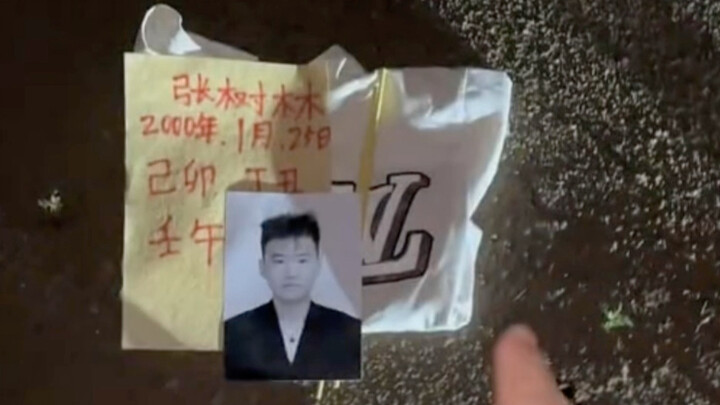 张树林
2000年.1月.25日
己卯 丁丑
壬午